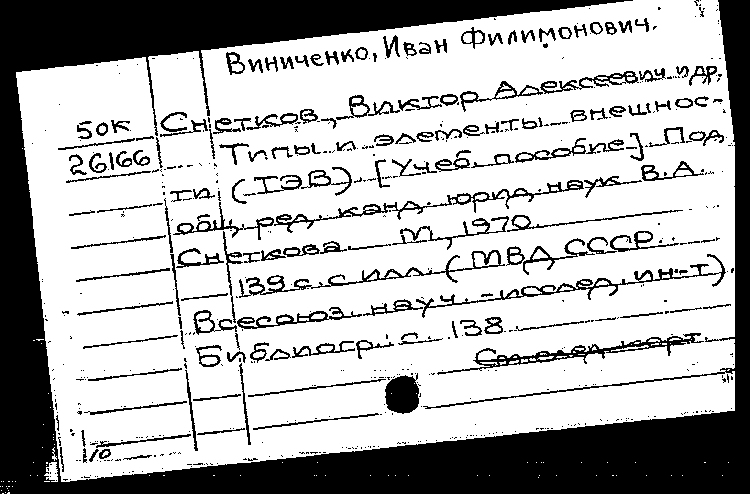 Виниченко, Иван Филимонович.
50К Снетков, Виктор Алексеевич и др.
26166 Типы и элементы внешнос-
ти (ТЭВ). [Учеб. пособие]. Под
общ. ред. канд. юрид. наук В.А.
Снеткова. М., 1970.
139 с. с илл. (МВД СССР.
Всесоюз. науч.-исслед. ин-т).
Библиогр.: с. 138.
См. след. карт.
10